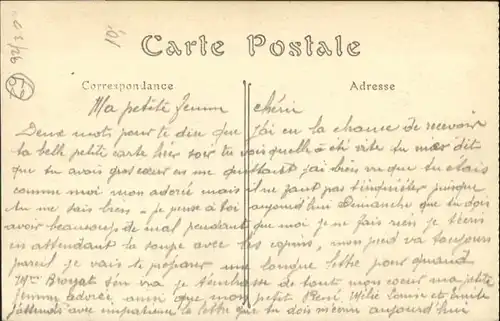 03/26
62
101
Carte Postale
Correspondance
Adresse
Ma petite femm chérie
Deux mots pour te dire que j'ai eu la chance de recevoir
ta belle petite carte hier soir tu vois quelle a été vite tu me dit
que tu avais gros cœur en me quittant j'ai bien vu que tu étais
comme moi mon adoré mais il ne faut pas t'inquiéter jusque
tu me sais bien je pense à toi aujourd'hui Dimanche que tu dois
avoir beaucoup de mal pendant que moi je ne fais rien je t'écris
en attendant la soupe avec les copins, mon pied va toujours
pareil je vais te préparer une longue lettre pour quand
Mme s'en va je t'embrasse de tout mon cœur ma petite
femme adorée ainsi que mon petit René, Louis et Emile
j'attends avec impatience la lettre que tu dois m'écrire aujourd'hui